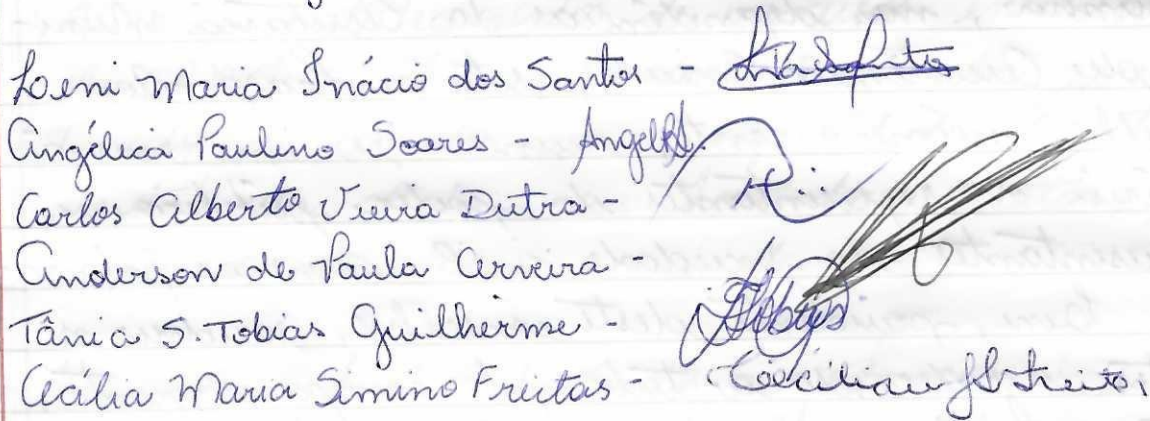 Leni Maria Inácio dos Santos -
Angélica Paulino Soares - AngelPS.
Carlos Alberto Vieira Dutra -
Anderson de Paula Cerveira -
Tânia S. Tobias Guilherme -
Cecília Maria Simino Freitas -